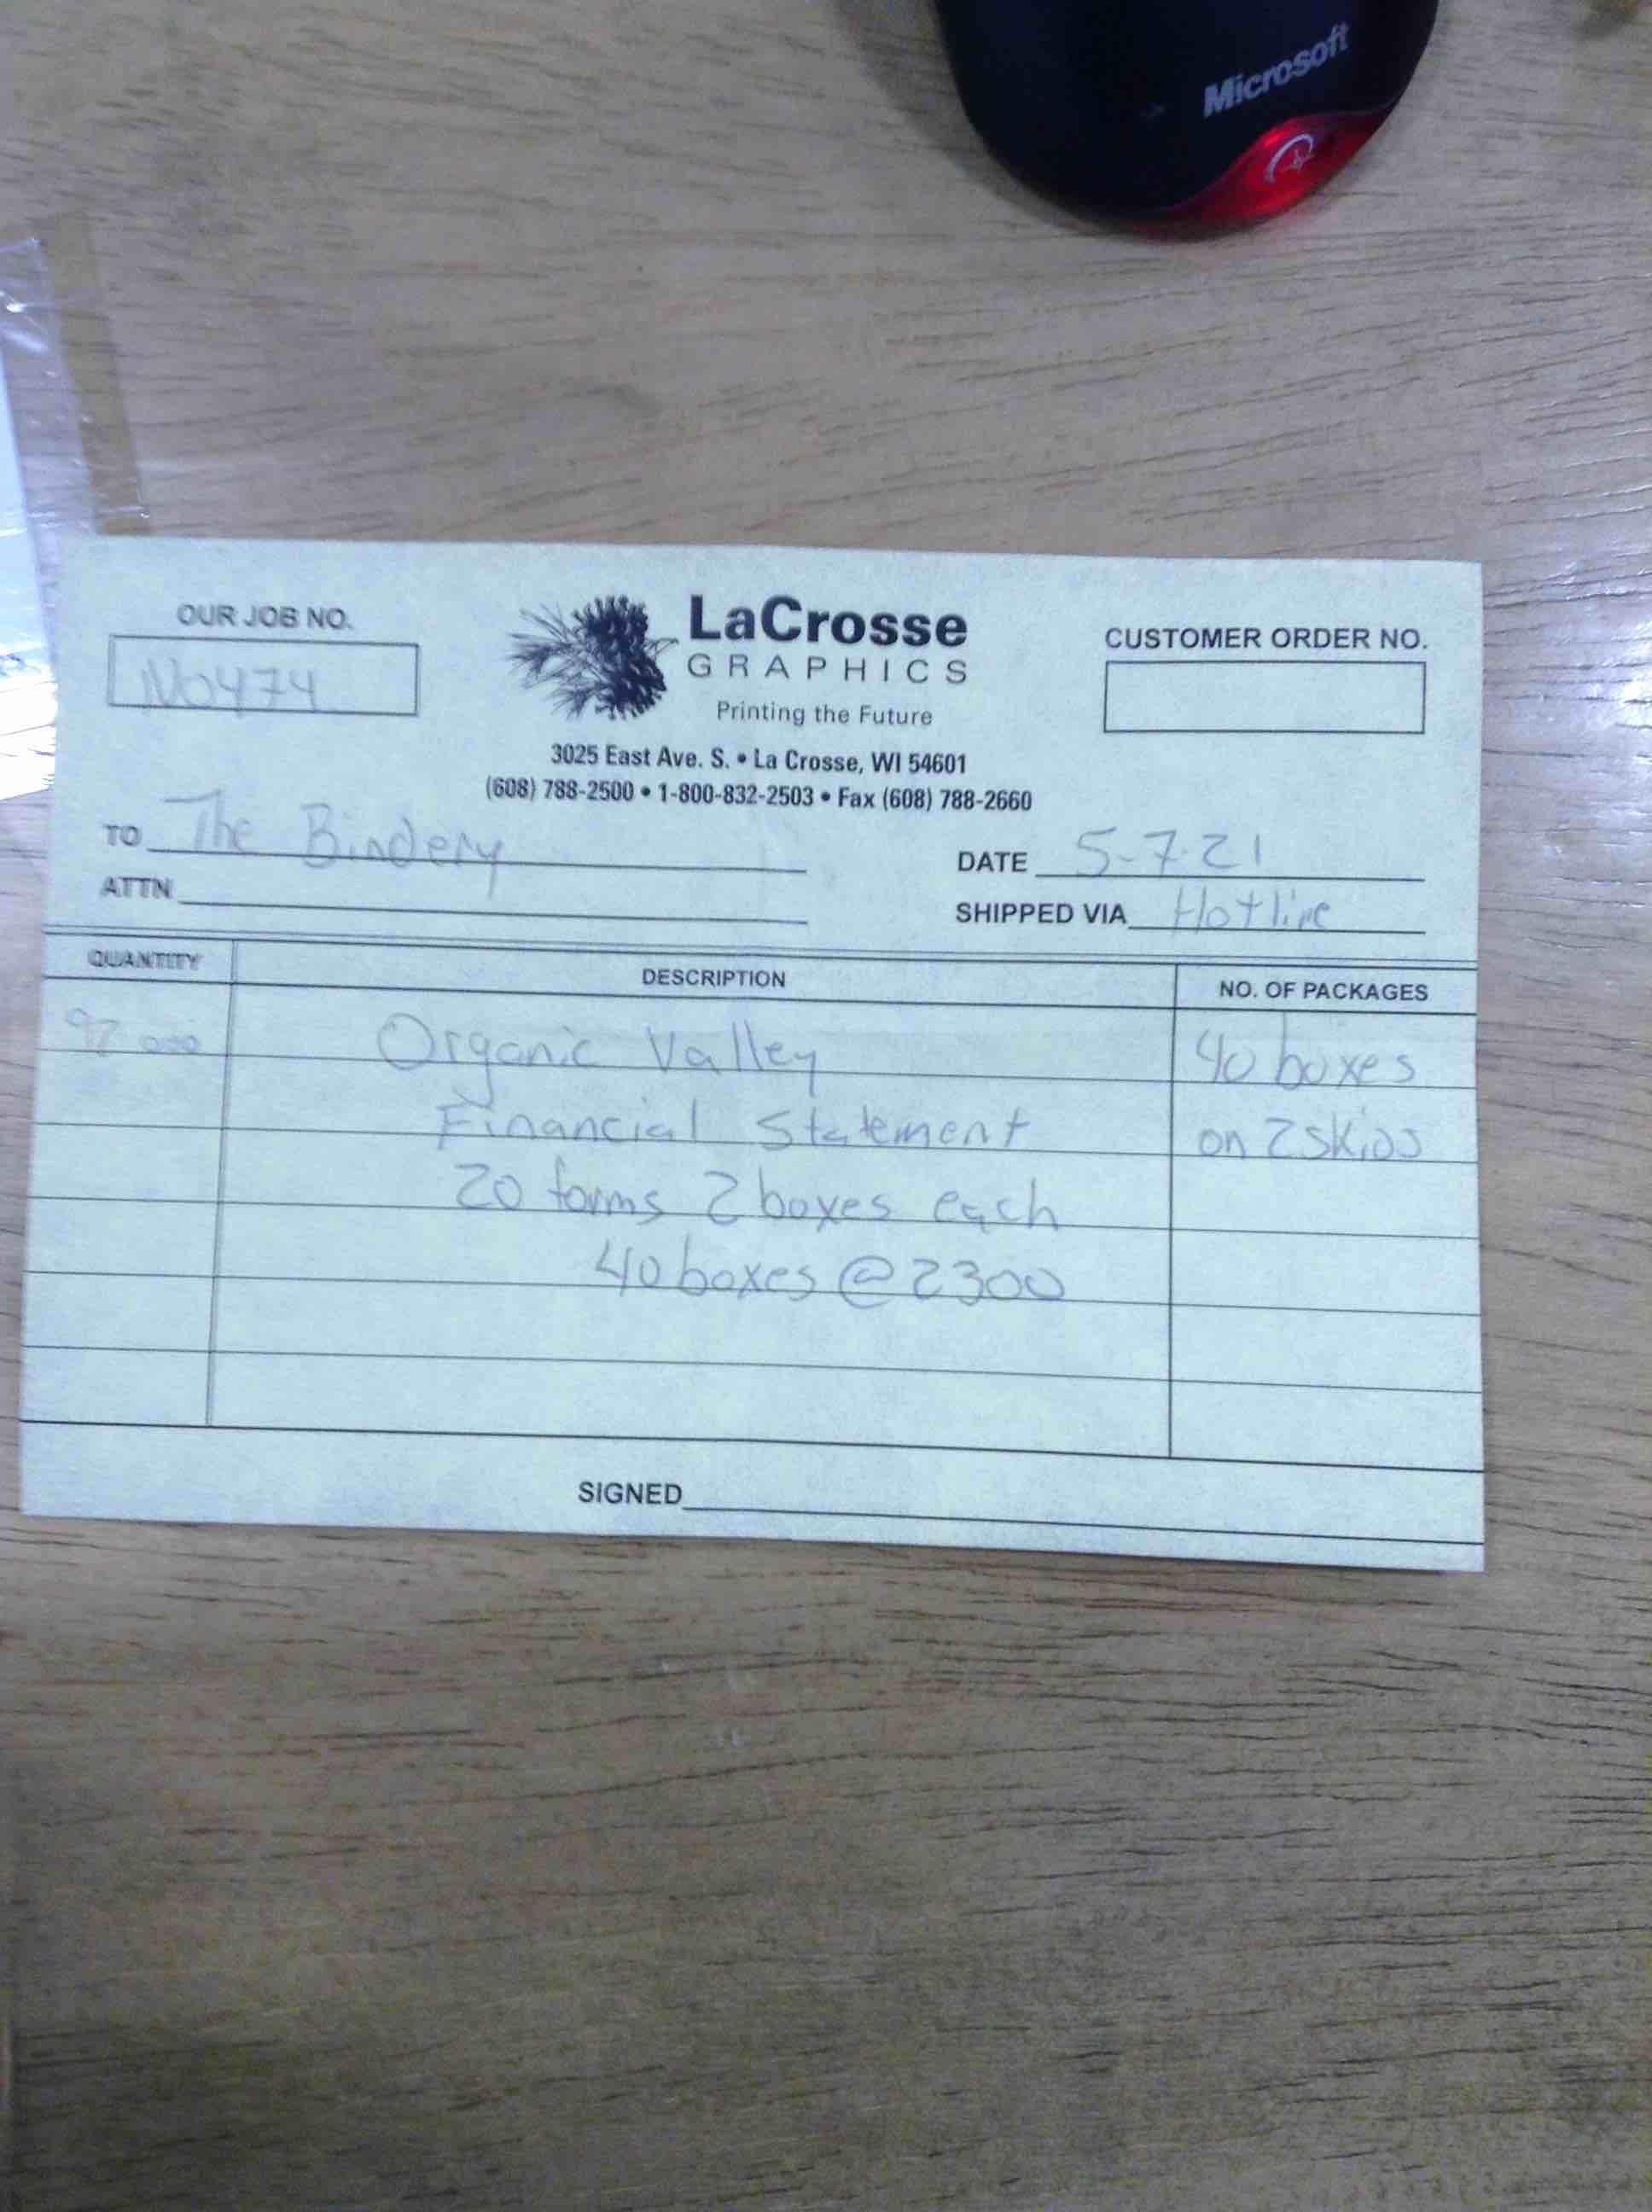 Microsoft
OUR JOB NO.
N0474
LaCrosse
GRAPHICS
Printing the Future
3025 East Ave. S. • La Crosse, WI 54601
(608) 788-2500 • 1-800-832-2503 • Fax (608) 788-2660
CUSTOMER ORDER NO.
TO The Bindery
ATTN
DATE 5-7-21
SHIPPED VIA Hotline
QUANTITY DESCRIPTION NO. OF PACKAGES
92 000 Organic Valley 40 boxes
Financial Statement on 2 skids
20 forms 2 boxes each
40 boxes @ 2300
SIGNED